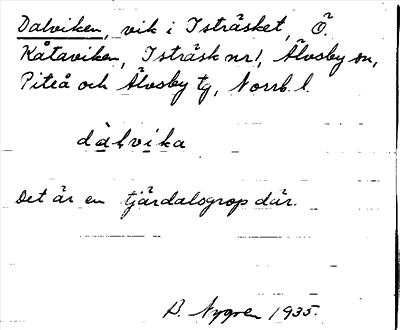 Dalviken, vik i Isträsket, Ö.
Kåtaviken, Isträsk nr 1, Älvsby sn,
Piteå och Älvsby tg, Norrb. l.
dàlvika
Det är en tjärdalsgrop där.
D. Nygren 1935.